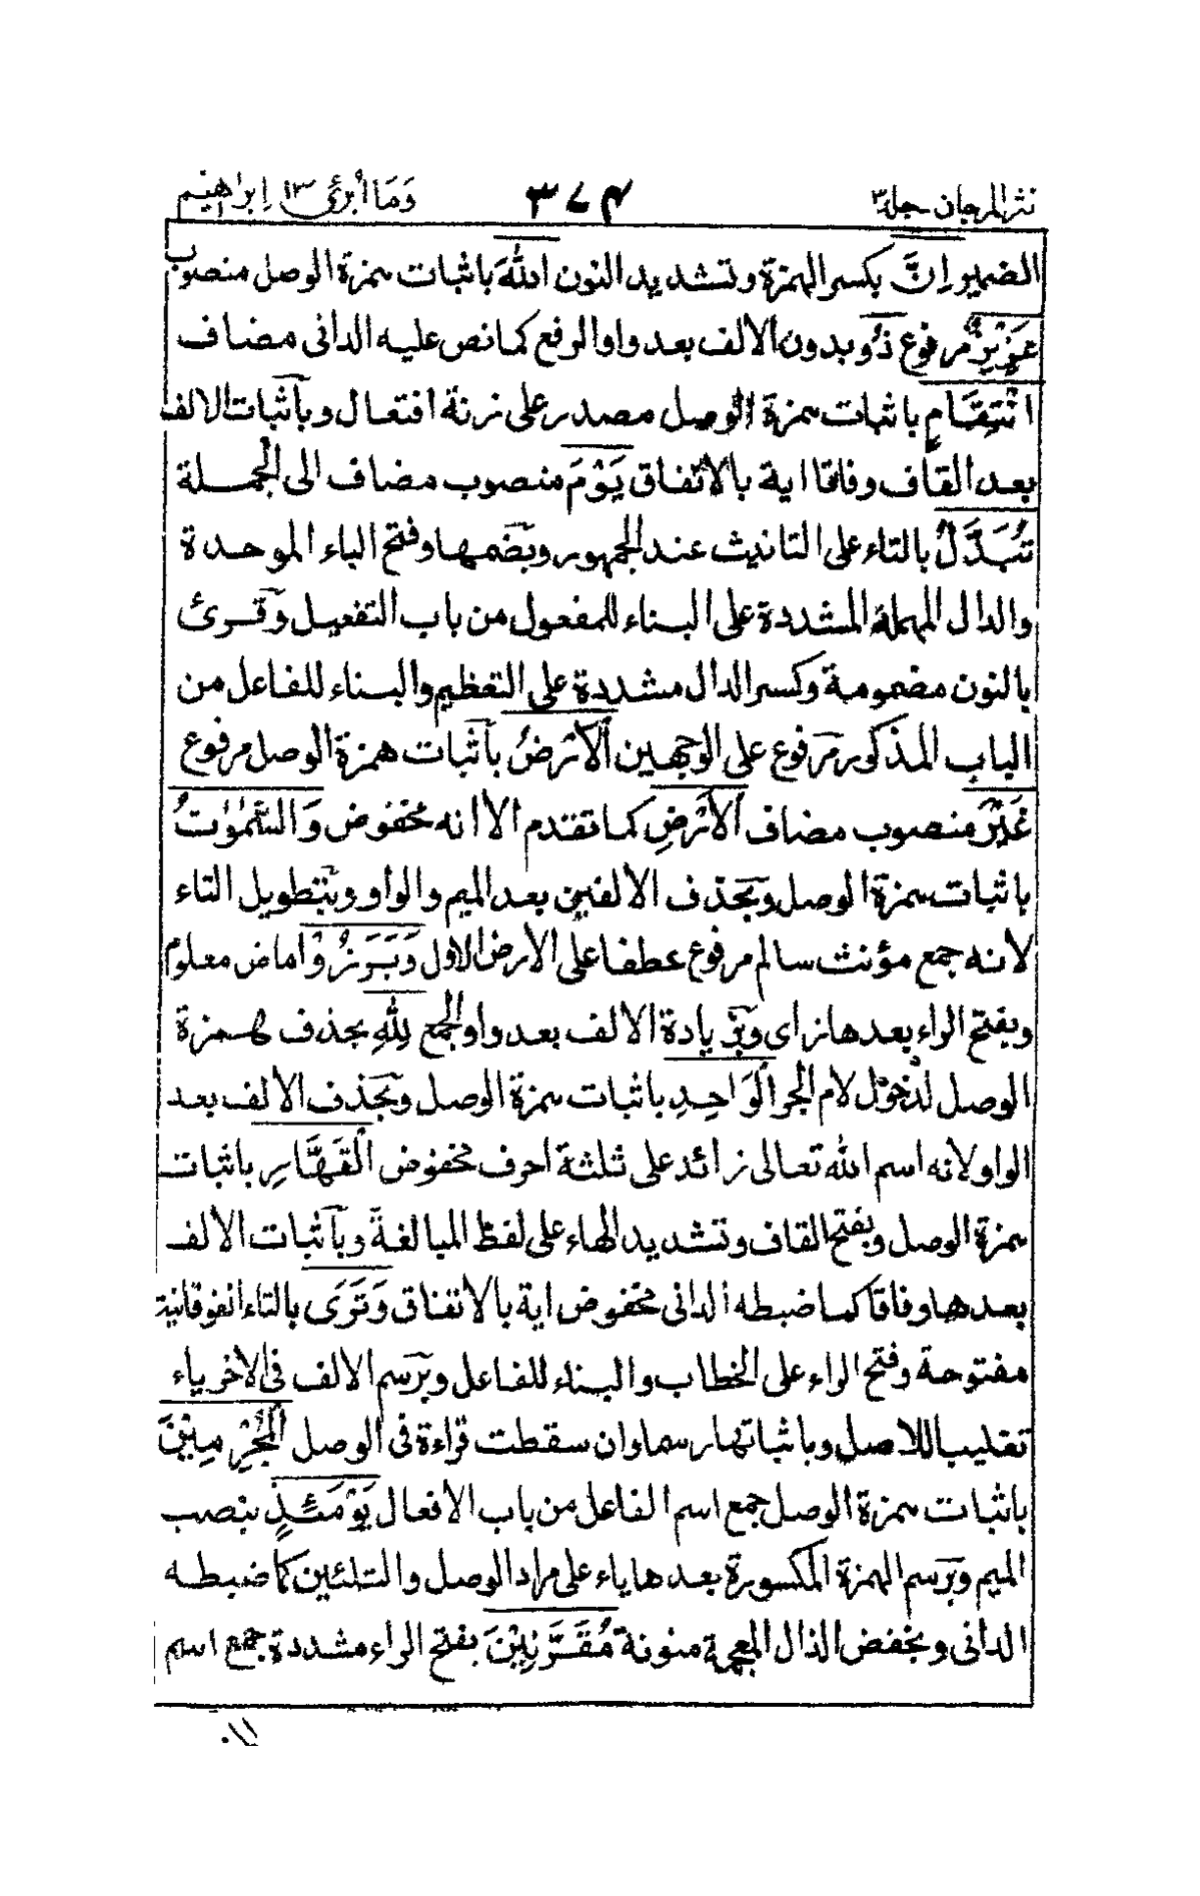 نثر المرجان جلد٣ ٣٧٤ وَمَا أُبَرِّئُ ١٣ إبراهيم
الضمير اِنَّ بكسر الهمزة وتشديد النون اللهَ باثبات همزة الوصل منصوب
عَزِيْزٌ مرفوع ذُو بدون الالف بعد واو الرفع كما نص عليه الدانى مضاف
انْتِقَامٍ باثبات همزة الوصل مصدر على زنة افتعال وبآثبات الالف
بعد القاف وفاقا اية بالاتفاق يَوْمَ منصوب مضاف الى الجملة
تُبَدَّلُ بالتاء على التانيث عند الجمهور وبضمها وفتح الباء الموحدة
والدال المهملة المشددة على البناء للمفعول من باب التفعيل وقرئ
بالنون مضمومة وكسر الدال مشددة على التعظيم والبناء للفاعل من
الباب المذكور مرفوع على الوجهين اَلْاَرْضُ بآثبات همزة الوصل مرفوع
غَيْرَ منصوب مضاف الْاَرْضِ كما تقدم الا انه مخفوض وَالسَّمٰوٰتُ
باثبات همزة الوصل وبحذف الالفين بعد الميم والواو وبتطويل التاء
لانه جمع مؤنث سالم مرفوع عطفا على الارض الاول وَبَرَزُوْا ماض معلوم
وبفتح الراء بعدها زاى وبزيادة الالف بعد واو الجمع لِلّٰهِ بحذف همزة
الوصل لدخول لام الجر الْوَاحِدِ باثبات همزة الوصل وبحذف الالف بعد
الواو لانه اسم الله تعالى زائد على ثلثة احرف مخفوض الْقَهَّارِ باثبات
همزة الوصل وبفتح القاف وتشديد الهاء على لفظ المبالغة وبآثبات الالف
بعدها وفاقا كما ضبطه الدانى مخفوض اية بالاتفاق وَتَرَى بالتاء الفوقانية
مفتوحة وفتح الراء على الخطاب والبناء للفاعل وبرسم الالف فى الاخر ياء
تغليبا للاصل وباثباتها رسما وان سقطت قراءة فى الوصل الْمُجْرِمِيْنَ
باثبات همزة الوصل جمع اسم الفاعل من باب الافعال يَوْمَئِذٍ بنصب
الميم وبرسم الهمزة المكسورة بعدها ياء على مراد الوصل والتليين كما ضبطه
الدانى وبخفض الذال المعجمة منونة مُقَرَّنِيْنَ بفتح الراء مشددة جمع اسم